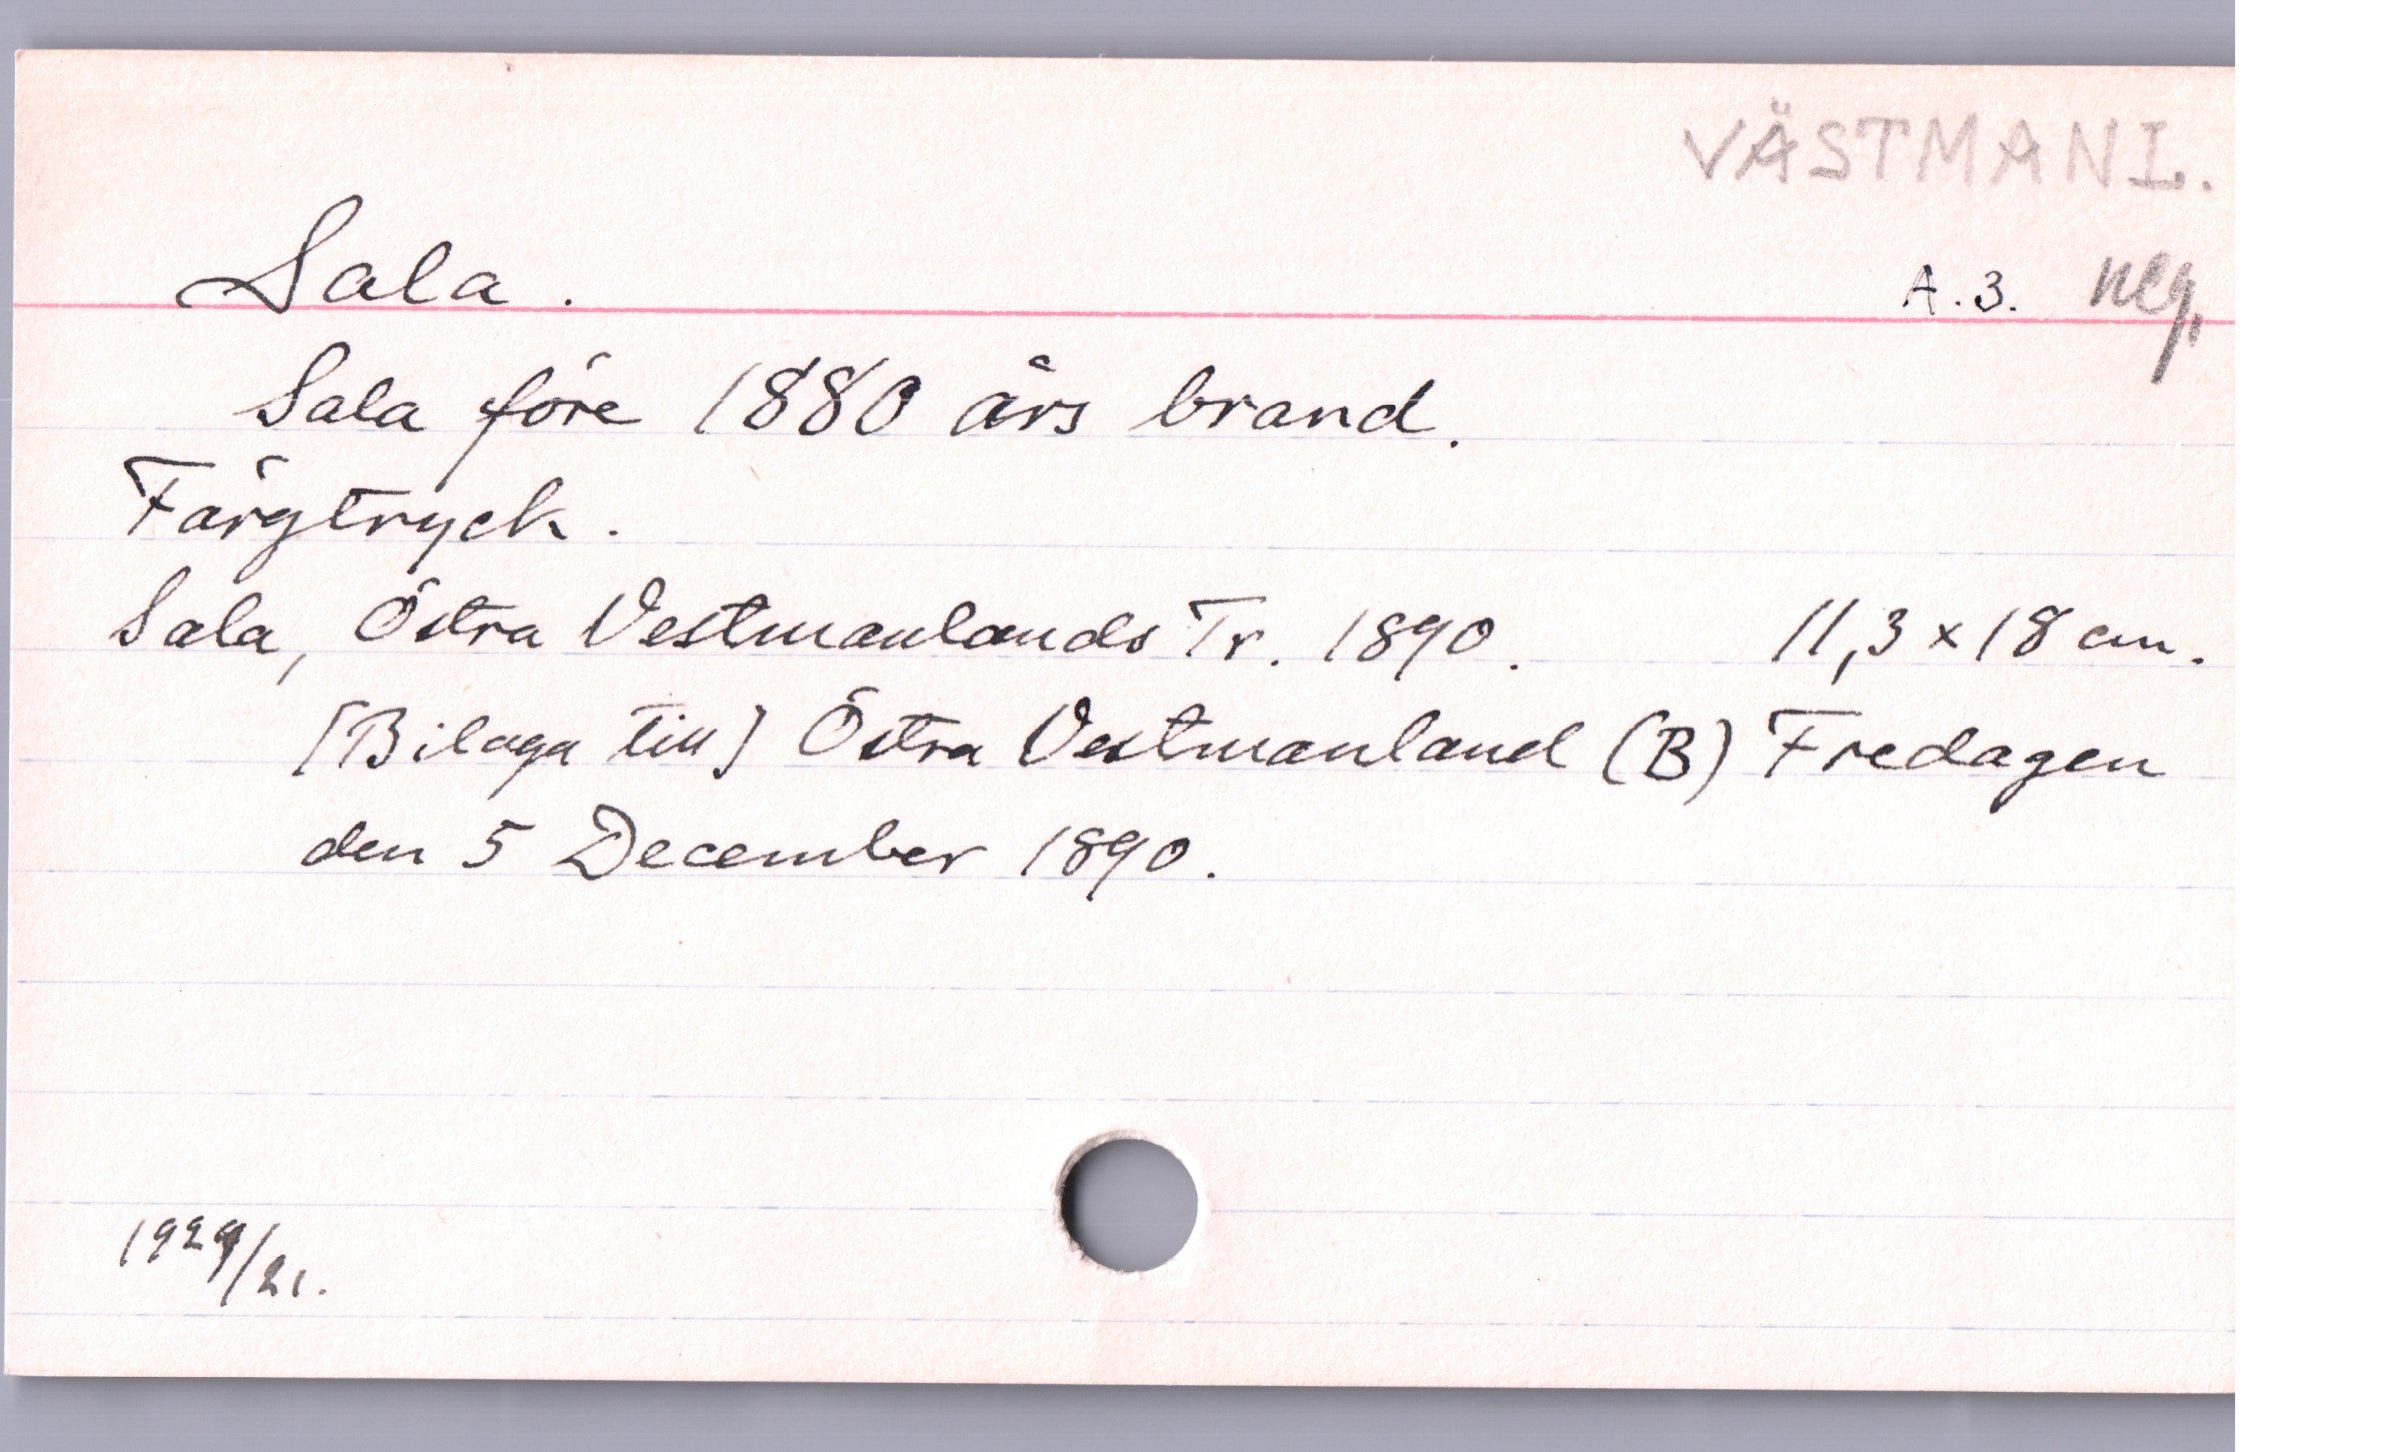 VÄSTMANL.
Sala. A.3. neg.
Sala före 1880 års brand.
Färgtryck.
Sala, Östra Vestmanlands Tr. 1890. 11,3 x 18 cm.
[Bilaga till] Östra Vestmanland (B) Fredagen
den 5 December 1890.
1929/21.